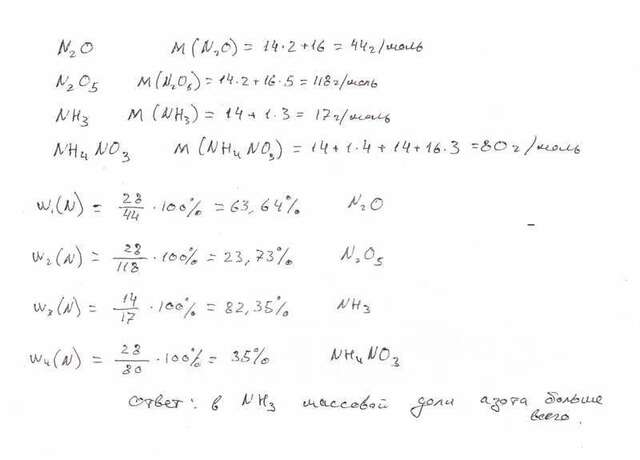 N₂O M(N₂O) = 14·2+16 = 44г/моль
N₂O₅ M(N₂O₅) = 14·2+16·5 = 118г/моль
NH₃ M(NH₃) = 14+1·3 = 17г/моль
NH₄NO₃ M(NH₄NO₃) = 14+1·4+14+16·3 = 80г/моль
w₁(N) = 28/44 · 100% = 63,64% N₂O
w₂(N) = 28/118 · 100% = 23,73% N₂O₅
w₃(N) = 14/17 · 100% = 82,35% NH₃
w₄(N) = 28/80 · 100% = 35% NH₄NO₃
Ответ: в NH₃ массовой доли азота больше
всего.